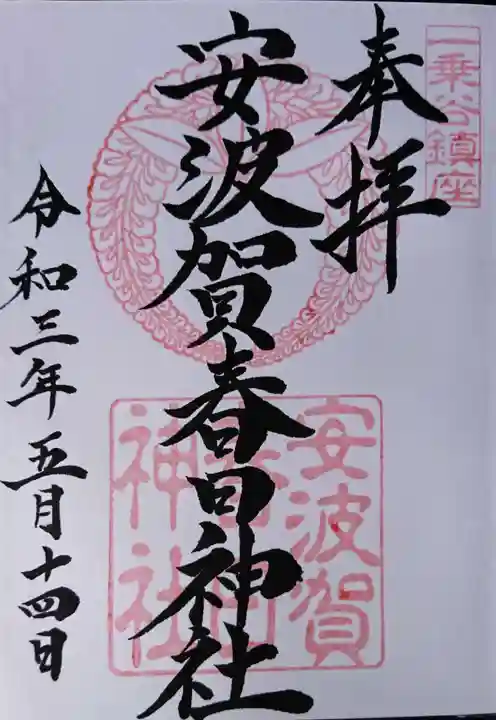 一乗谷鎮座
奉拝
安波賀春日神社
安波賀
春日
神社
令和三年五月十四日